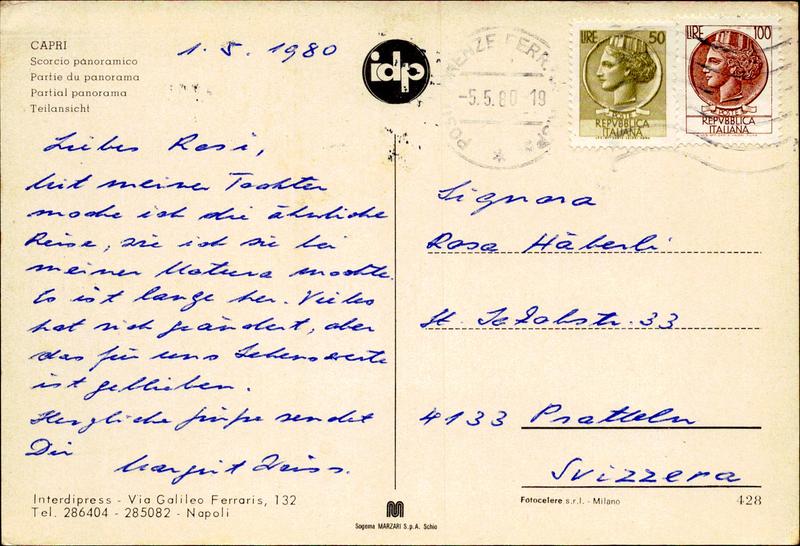 CAPRI
Scorcio panoramico
Partie du panorama
Partial panorama
Teilansicht
1.5.1980
idp
FIRENZE FERR.
-5.5.80-19
LIRE 50
POSTE
REPVBBLICA
ITALIANA
LIRE 100
POSTE
REPVBBLICA
ITALIANA
Liebes Rosi,
mit meiner Tochter
mache ich die ähnliche
Reise, wie ich sie bei
meiner Matura machte.
Es ist lange her. Vieles
hat sich geändert, aber
das für uns Sehenswerte
ist geblieben.
Herzliche Grüsse sendet
Dir
Margrit
Signora
Rosa Häberli
St. Jakobstr. 33
4133 Pratteln
Svizzera
Interdipress - Via Galileo Ferraris, 132
Tel. 286404 - 285082 - Napoli
M
Sogema MARZARI S.p.A. Schio
Fotocelere s.r.l. - Milano
428